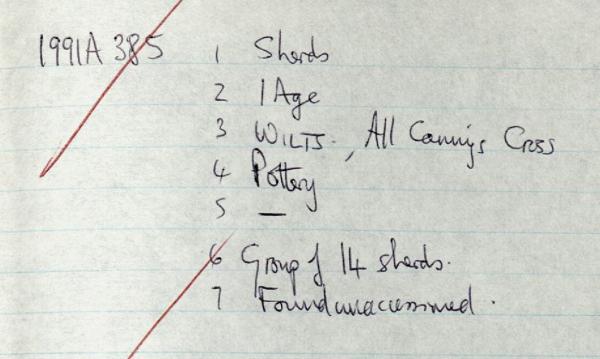 1991A 385 1 Sherds
2 IAge
3 WILTS., All Cannings Cross
4 Pottery
5 —
6 Group of 14 sherds.
7 Found unaccessioned.